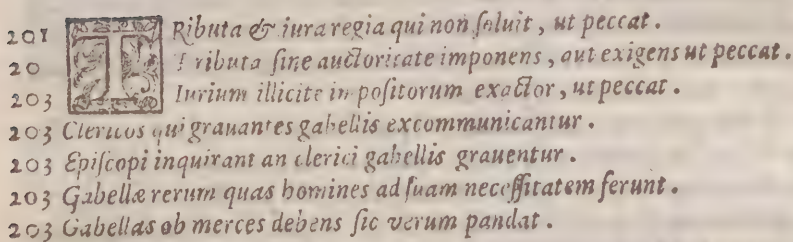 201 TRibuta & iura regia qui non ſoluit, ut peccat.
20 Tributa ſine auctoritate imponens, aut exigens ut peccat.
203 Iurium illicite impoſitorum exactor, ut peccat.
203 Clericos qui grauantes gabellis excommunicantur.
203 Epiſcopi inquirant an clerici gabellis grauentur.
203 Gabellæ rerum quas homines ad ſuam neceſſitatem ferunt.
203 Gabellas ob merces debens ſic verum pandat.